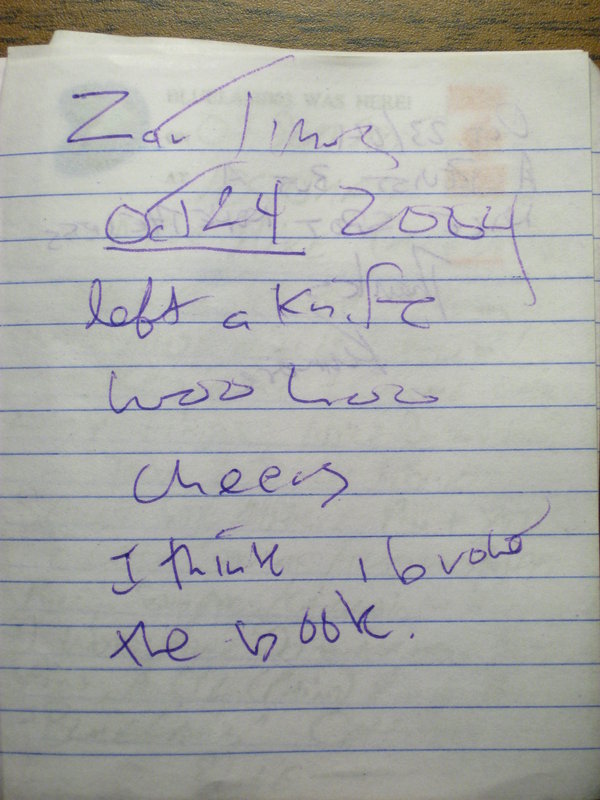 Zan Times
Oct 24 2004
left a knife
woo hoo
cheers
I think i broke
the book.